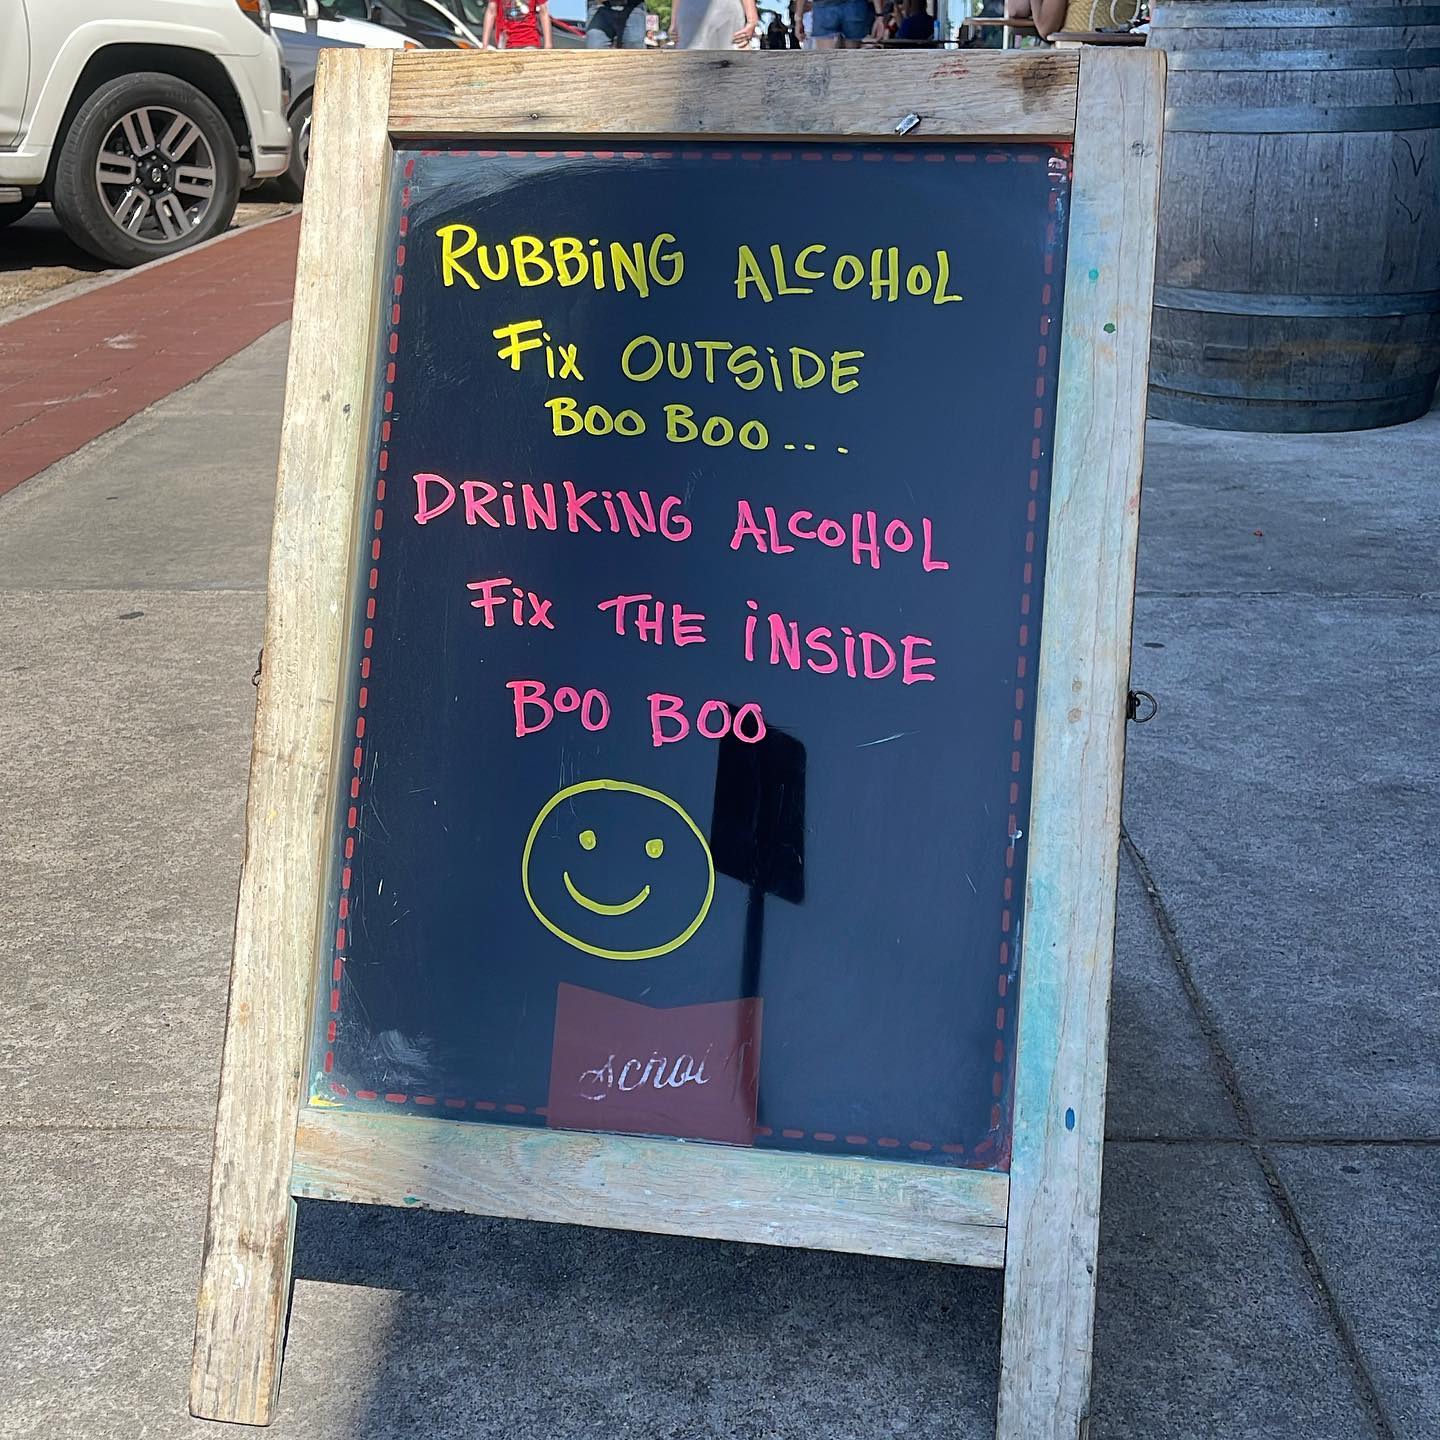 RUBBiNG ALCOHOL
Fix OUTSiDE
BOO BOO...
DRiNKiNG ALCOHOL
Fix THE iNSiDE
BOO BOO